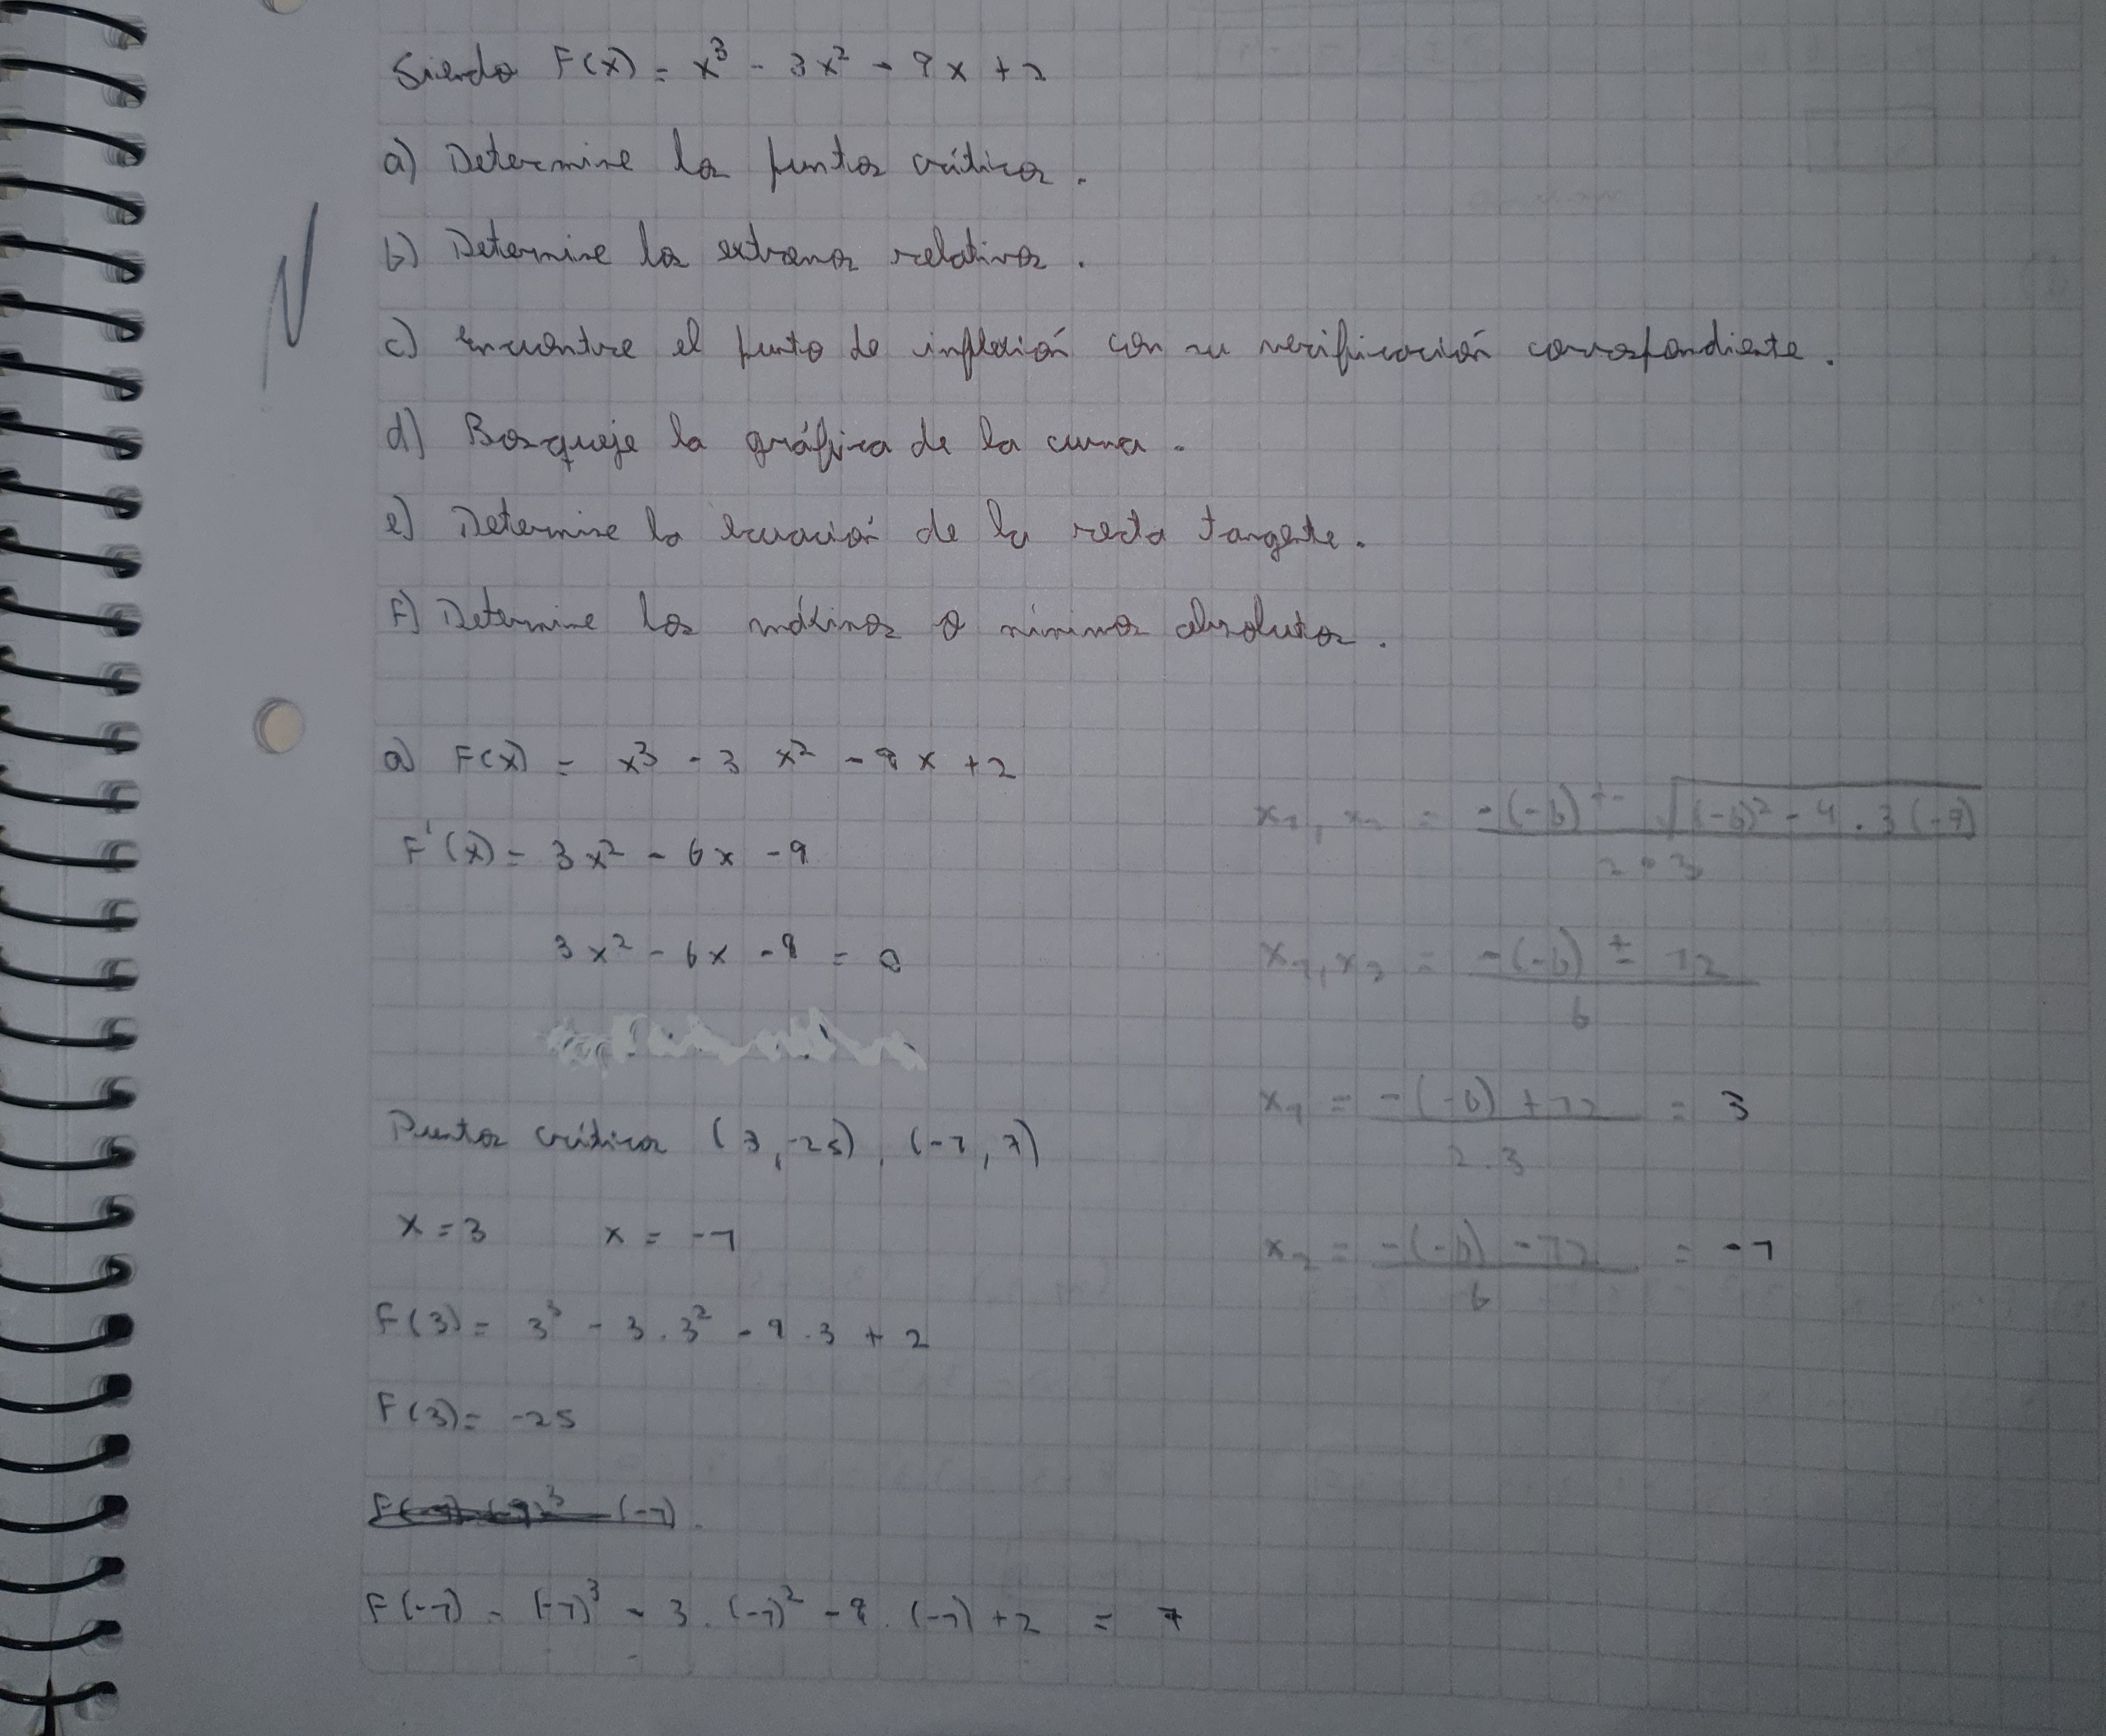 Siendo F(x) = x³ - 3x² - 9x + 2
a) Determine los puntos críticos.
b) Determine los extremos relativos.
c) Encuentre el punto de inflexión con su verificación correspondiente.
d) Bosqueje la gráfica de la curva.
e) Determine la ecuación de la recta tangente.
F) Determine los máximos o mínimos absolutos.
a) F(x) = x³ - 3 x² - 9x + 2
F'(x) = 3x² - 6x - 9
3x² - 6x - 9 = 0
Puntos críticos (3, -25), (-1, 7)
x = 3 x = -1
F(3) = 3³ - 3 . 3² - 9 . 3 + 2
F(3) = -25
F(-1) = (-1)³ - 3 . (-1)² - 9 . (-1) + 2 = 7
x₁, x₂ = -(-6) +- √(-6)² - 4 . 3 (-9) / 2 . 3
x₁, x₂ = -(-6) ± 12 / 6
x₁ = -(-6) + 12 / 2 . 3 = 3
x₂ = -(-6) - 12 / 6 = -1